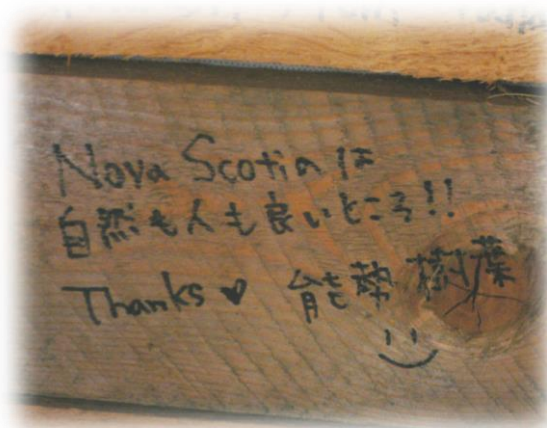 Nova Scotiaは
自然も人も良いところ!!
Thanks♥ 能勢 樹葉